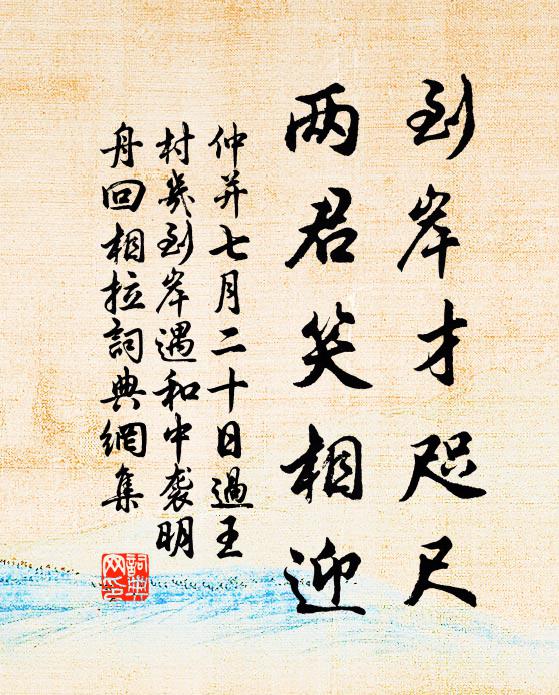 到岸才咫尺
两君笑相迎
仲并七月二十日過王
村幾到岸遇和中袭明
舟回相拉詞典網集
詞典網印